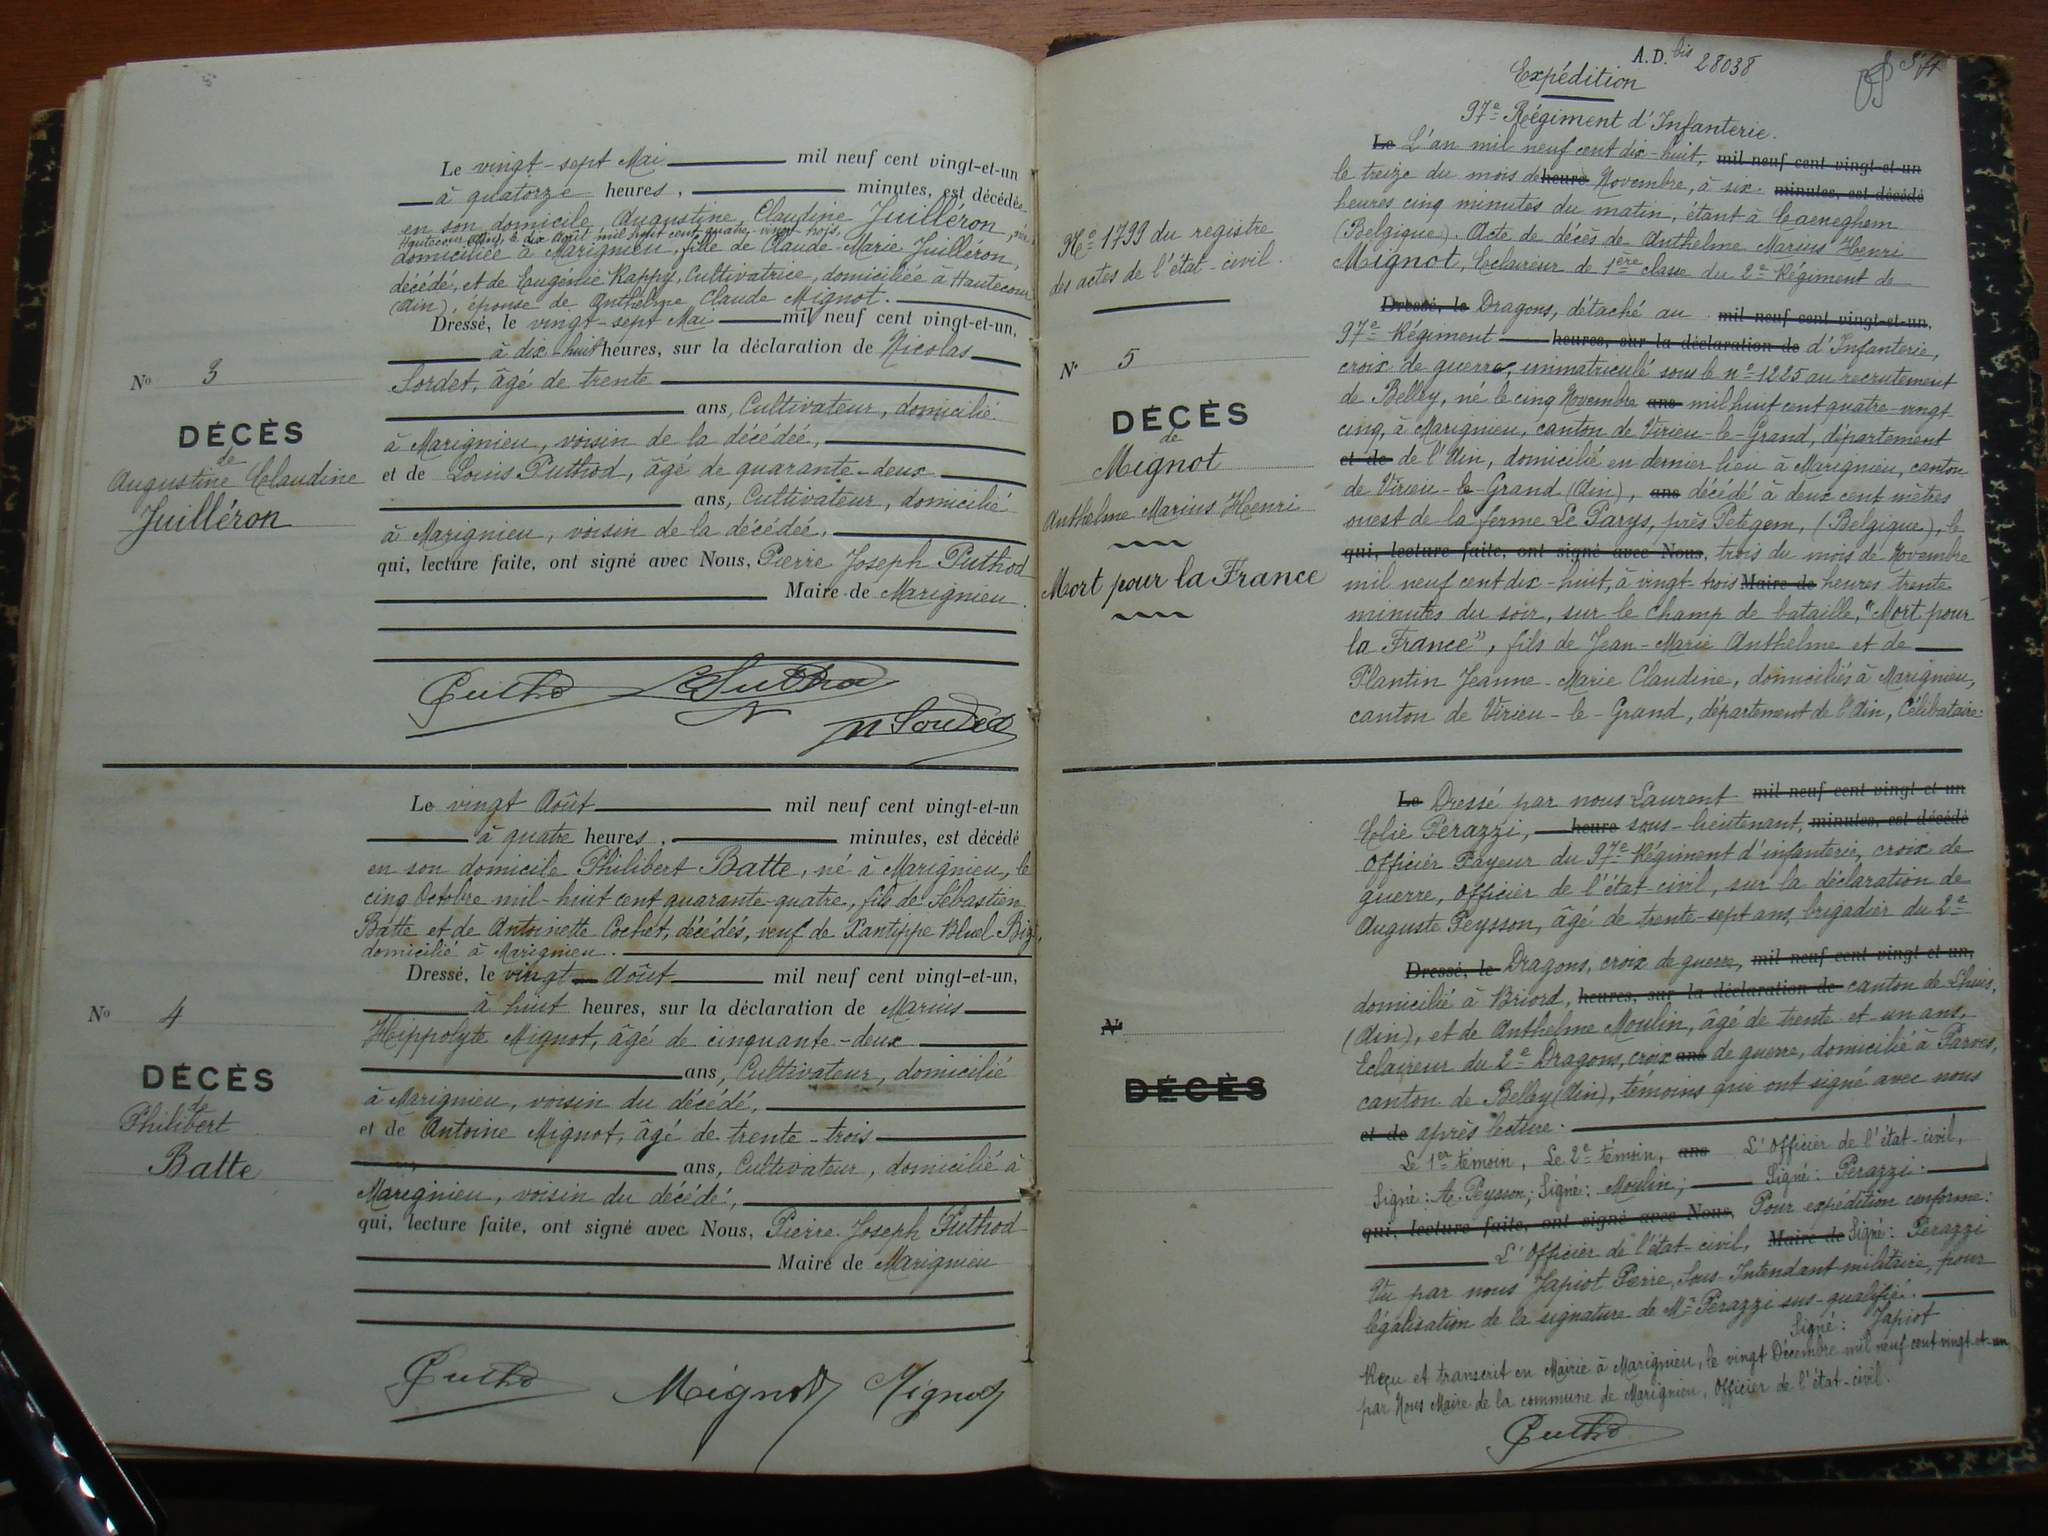 3
Le vingt-sept Mai mil neuf cent vingt-et-un
à quatorze heures, minutes, est décédée
en son domicile Augustine, Claudine Juilléron, née
Hautecour (Ain), le dix Août mil huit cent quatre-vingt-trois,
domiciliée à Marignieu, fille de Claude-Marie Juilléron,
décédé, et de Eugénie Rappy, Cultivatrice, domiciliée à Hautecour
(Ain), épouse de Anthelme Claude Mignot.
Dressé, le vingt-sept Mai mil neuf cent vingt-et-un,
à dix-huit heures, sur la déclaration de Nicolas
Nº 3
Sordet, âgé de trente
ans, Cultivateur, domicilié
DÉCÈS
de
Augustine Claudine
Juilléron
à Marignieu, voisin de la décédée,
et de Louis Puthod, âgé de quarante-deux
ans, Cultivateur, domicilié
à Marignieu, voisin de la décédée,
qui, lecture faite, ont signé avec Nous, Pierre Joseph Puthod
Maire de Marignieu.
Puthod
N Sordet
Le vingt Août mil neuf cent vingt-et-un
à quatre heures, minutes, est décédé
en son domicile Philibert Batte, né à Marignieu, le
cinq Octobre mil-huit cent quarante-quatre, fils de Sébastien
Batte et de Antoinette Cochet, décédés, veuf de Xantippe Bluel Bizo,
domicilié à Marignieu.
Dressé, le vingt Août mil neuf cent vingt-et-un,
à huit heures, sur la déclaration de Marius
Nº 4
Hippolyte Mignot, âgé de cinquante-deux
ans, Cultivateur, domicilié
DÉCÈS
de
Philibert
Batte
à Marignieu, voisin du décédé,
et de Antoine Mignot, âgé de trente-trois
ans, Cultivateur, domicilié à
Marignieu, voisin du décédé,
qui, lecture faite, ont signé avec Nous, Pierre Joseph Puthod
Maire de Marignieu
Puthod Mignot Mignot
A.D. bis 28038
Expédition
97e Régiment d'Infanterie.
Le L'an mil neuf cent dix-huit, mil neuf cent vingt-et-un
le treize du mois de heure Novembre, à six minutes, est décédé
heures cinq minutes du matin, étant à Caeneghem
(Belgique). Acte de décès de Anthelme Marius Henri
Mignot, Eclaireur de 1ère classe du 2e Régiment de
Nº 1799 du registre
des actes de l'état-civil.
Dressé, le Dragons, détaché au mil neuf cent vingt-et-un,
97e Régiment heures, sur la déclaration de d'Infanterie,
Nº 5
croix de guerre, immatriculé sous le nº 1225 au recrutement
de Belley, né le cinq Novembre ans mil huit cent quatre-vingt
DÉCÈS
de
Mignot
Anthelme Marius Henri
Mort pour la France
cinq, à Marignieu, canton de Virieu-le-Grand, département
et de de l'Ain, domicilié en dernier lieu à Marignieu, canton
de Virieu-le-Grand (Ain), ans décédé à deux cent mètres
ouest de la ferme Le Parys, près Petegem, (Belgique), le
qui, lecture faite, ont signé avec Nous, trois du mois de Novembre
mil neuf cent dix-huit, à vingt-trois Maire de heures trente
minutes du soir, sur le champ de bataille, "Mort pour
la France", fils de Jean-Marie Anthelme et de
Plantin Jeanne-Marie Claudine, domiciliés à Marignieu,
canton de Virieu-le-Grand, département de l'Ain, Célibataire.
Le Dressé par nous Laurent mil neuf cent vingt et un
Elie Perazzi, heure sous-lieutenant, minutes, est décédé
Officier Payeur du 97e Régiment d'infanterie, croix de
guerre, Officier de l'état-civil, sur la déclaration de
Auguste Peysson, âgé de trente-sept ans, brigadier du 2e
Dressé, le Dragons, croix de guerre, mil neuf cent vingt et un,
domicilié à Briord, heures, sur la déclaration de canton de Lhuis,
Nº
(Ain), et de Anthelme Moulin, âgé de trente-et-un ans,
Eclaireur du 2e Dragons, croix ans de guerre, domicilié à Parves,
DÉCÈS
canton de Belley (Ain), témoins qui ont signé avec nous
et de après lecture.
Le 1er témoin, Le 2e témoin, ans L'Officier de l'état-civil,
Signé: A. Peysson; Signé: Moulin; Signé: Perazzi.
qui, lecture faite, ont signé avec Nous, Pour expédition conforme:
L'Officier de l'état-civil, Maire de Signé: Perazzi
Vu par nous Japiot Pierre, Sous-Intendant militaire, pour
légalisation de la signature de Mr Perazzi sus-qualifié.
Signé: Japiot
Reçu et transcrit en Mairie à Marignieu, le vingt Décembre mil neuf cent vingt-et-un
par Nous Maire de la commune de Marignieu, Officier de l'état-civil.
Puthod